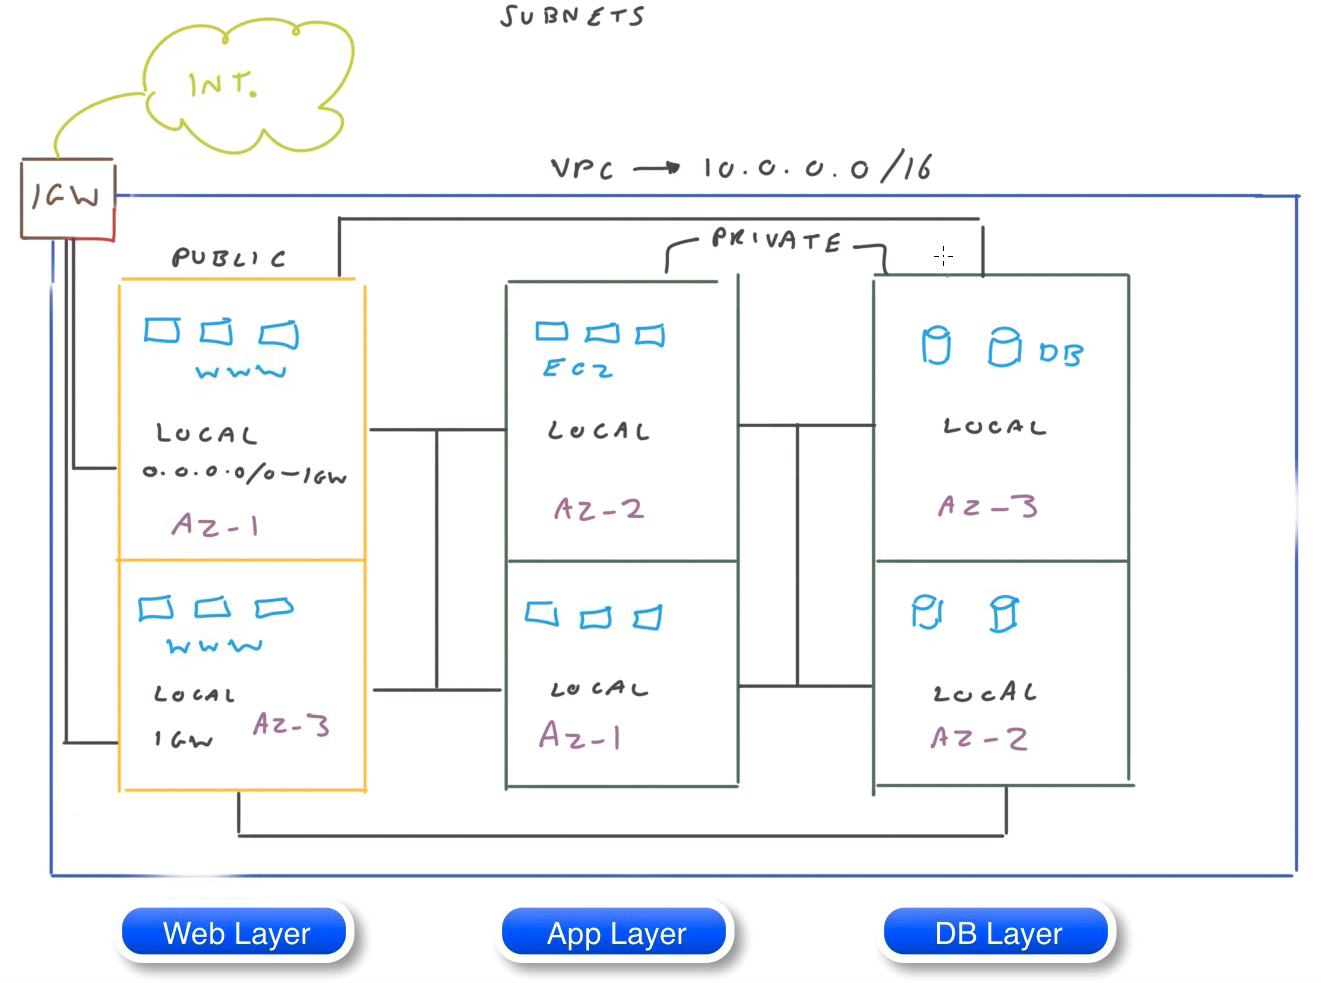 SUBNETS
INT.
IGW
VPC → 10.0.0.0/16
PUBLIC
PRIVATE
WWW
LOCAL
0.0.0.0/0-IGW
AZ-1
EC2
LOCAL
AZ-2
DB
LOCAL
AZ-3
WWW
LOCAL
IGW
AZ-3
LOCAL
AZ-1
LOCAL
AZ-2
Web Layer
App Layer
DB Layer